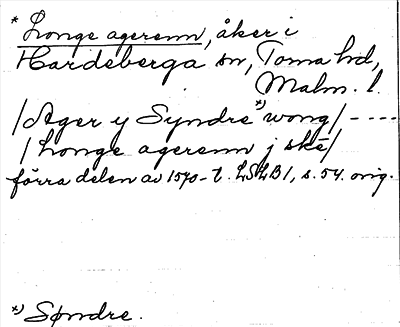 * Longe agerenn, åker i
Hardeberga sn, Torna hd,
Malm. l.
/Ager y Syndre *) wong/ - - - -
/ Longe agerenn j skē/
förra delen av 1570-t. LSLB 1, s. 54. orig.
*) Søndre.